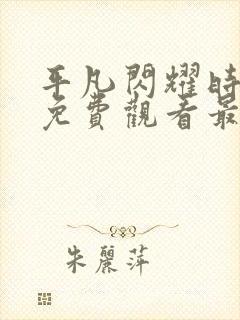 平凡閃耀時
免費觀看最
朱麗萍